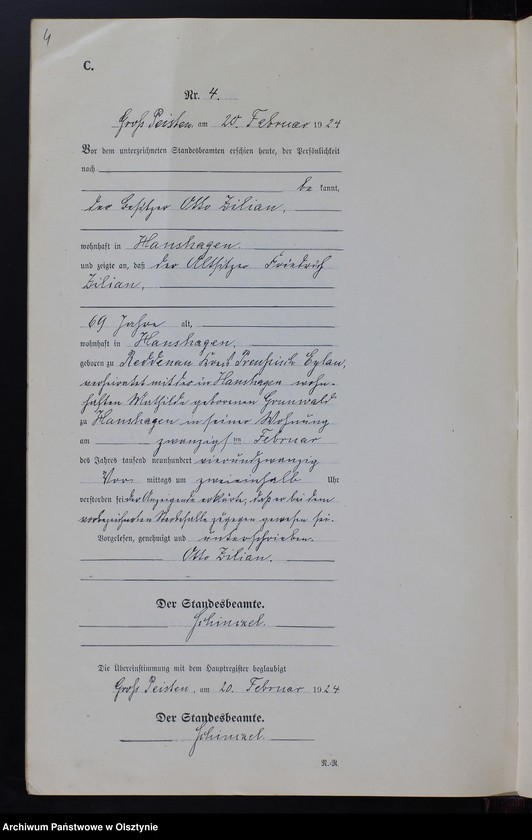 4
C.
Nr. 4.
Groß Peisten, am 20. Februar 1924
Vor dem unterzeichneten Standesbeamten erschien heute, der Persönlichkeit
nach
be kannt,
der Besitzer Otto Zilian,
wohnhaft in Hanshagen.
und zeigte an, daß der Altsitzer Friedrich
Zilian,
69 Jahre alt,
wohnhaft in Hanshagen,
geboren zu Reddenau Kreis Preußisch Eylau,
verheiratet mit der in Hanshagen wohn-
haften Mathilde geborenen Grunwald
zu Hanshagen in seiner Wohnung
am zwanzigsten Februar
des Jahres tausend neunhundert vierundzwanzig
Vor- mittags um zweieinhalb Uhr
verstorben sei der Anzeigende erklärte, daß er bei dem
vorbezeichneten Sterbefalle zugegen gewesen sei.
Vorgelesen, genehmigt und unterschrieben.
Otto Zilian.
Der Standesbeamte.
Schimmel.
Die Übereinstimmung mit dem Hauptregister beglaubigt
Groß Peisten, am 20. Februar 1924
Der Standesbeamte.
Schimmel.
N.-R.
Archiwum Państwowe w Olsztynie